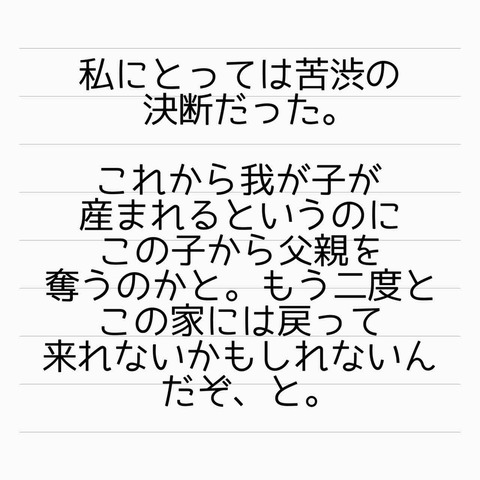 私にとっては苦渋の
決断だった。
これから我が子が
産まれるというのに
この子から父親を
奪うのかと。もう二度と
この家には戻って
来れないかもしれないん
だぞ、と。